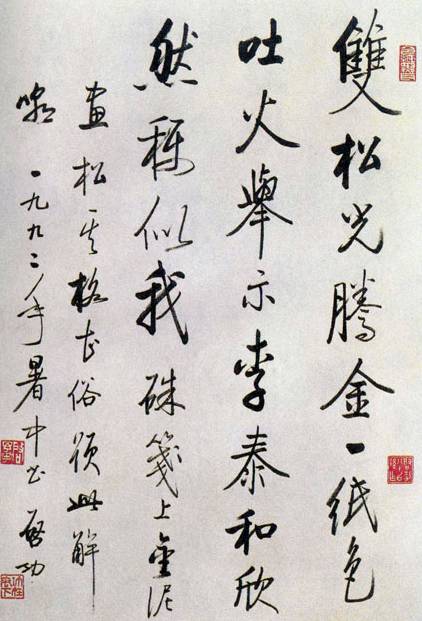 雙松光騰金一紙色
吐火舉示李泰和欣
然稱似我 硃箋上金泥
畫松其格甚俗須此解
嘲 一九九二年暑中書 啓功